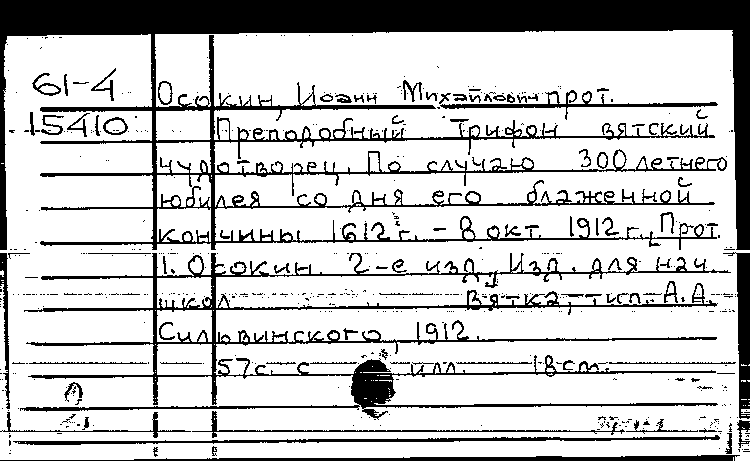 61-4
15410
Осокин, Иоанн Михайлович прот.
Преподобный Трифон вятский
чудотворец. По случаю 300летнего
юбилея со дня его блаженной
кончины 1612 г. - 8 окт. 1912 г., Прот.
I. Осокин. 2-е изд., Изд. для нач.
школ Вятка, тип. А.А.
Сильвинского, 1912.
57с. с илл. 18см.